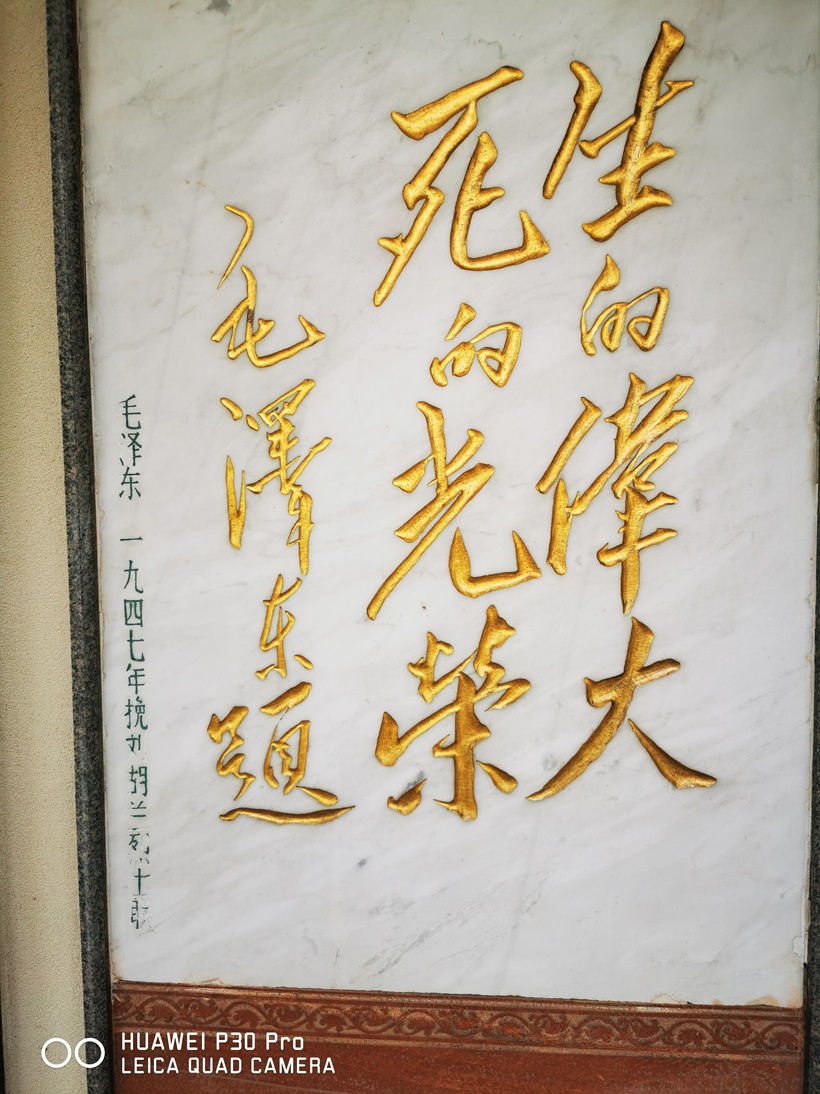 生的偉大
死的光榮
毛澤东題
毛泽东 一九四七年挽刘胡兰烈士联
HUAWEI P30 Pro
LEICA QUAD CAMERA